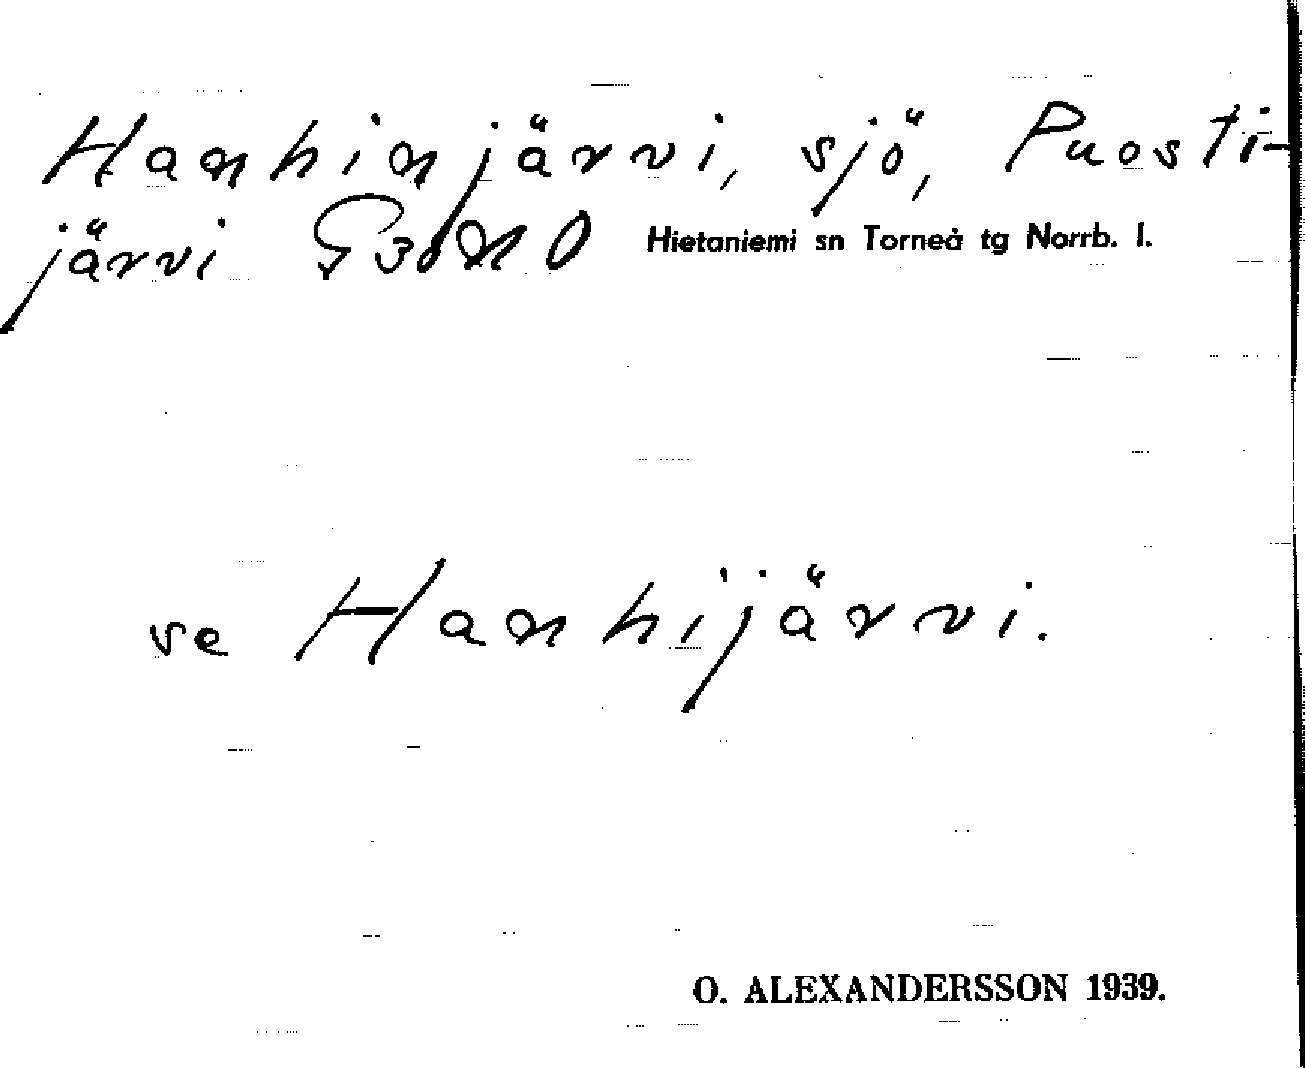 Hanhinjärvi, sjö, Puosti-
järvi G36NO Hietaniemi sn Torneå tg Norrb. l.
se Hanhijärvi.
O. ALEXANDERSSON 1939.